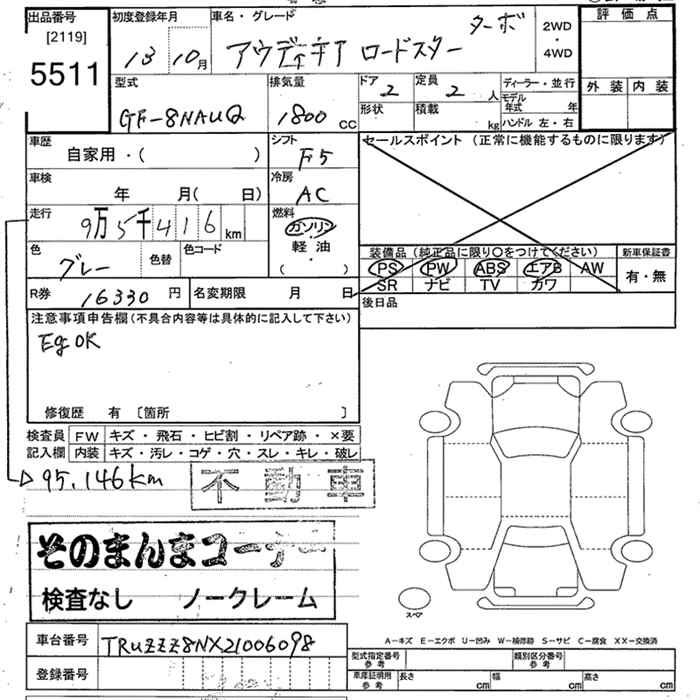 出品番号
[2119]
5511
初度登録年月
13 10月
車名・グレード
アウディTT ロードスター ターボ
2WD
・
4WD
評価点
外装 内装
型式
GF-8NAUQ
排気量
1800 cc
ドア
2
定員
2 人
形状
積載
kg
ディーラー・並行
モデル年式 年
ハンドル 左・右
車歴
自家用・( )
シフト
F5
セールスポイント (正常に機能するものに限ります)
車検
年 月( 日)
冷房
AC
走行
9万5千416km
燃料
ガソリン
・
軽油
( ・ )
色
グレー
色替
色コード
装備品 (純正品に限り○をつけてください)
PS PW ABS エアB AW
SR ナビ TV カワ
新車保証書
有・無
R券
16330円
名変期限 月 日
後日品
注意事項申告欄 (不具合内容等は具体的に記入して下さい)
Eg OK
修復歴 有 〔箇所 〕
検査員記入欄
FW キズ・飛石・ヒビ割・リペア跡・×要
内装 キズ・汚レ・コゲ・穴・スレ・キレ・破レ
95,146km
不動車
そのまんまコーナー
検査なし ノークレーム
スペア
A−キズ E−エクボ U−凹み W−補修跡 S−サビ C−腐食 XX−交換済
車台番号
TRUZZZ8NX21006098
登録番号
型式指定番号
参考
類別区分番号
参考
車庫証明用
参考
長さ cm
幅 cm
高さ cm